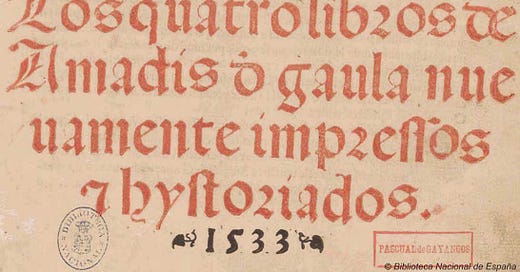 Los quatro libros de
Amadis ꝺ gaula nue
uamente impreſſos
⁊ hyſtoriados.
1533
BIBLIOTECA NACIONAL
PASCUAL de GAYANGOS
© Biblioteca Nacional de España